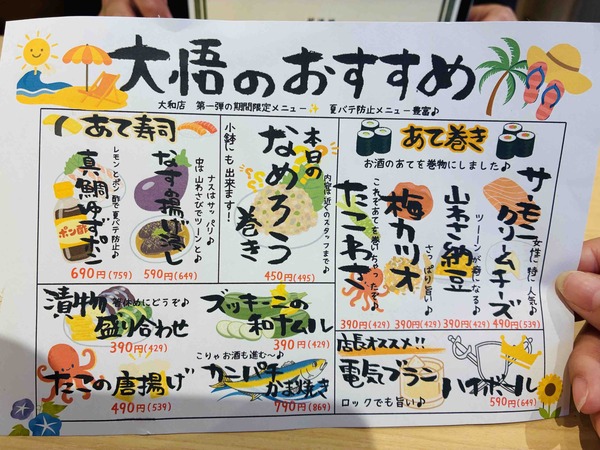 大悟のおすすめ
大和店 第一弾の期間限定メニュー✨ 夏バテ防止メニュー豊富♪
あて寿司
なすの揚げ浸し
ナスはサッパリ♪
中は山わさびでツーンと♪
590円(649)
真鯛ゆずポン
レモンとポン酢で夏バテ防止♪
ポン酢
690円(759)
本日の
なめろう
巻き
小鉢にも出来ます!
内容は近くのスタッフまで♪
450円(495)
あて巻き
お酒のあてを巻物にしました♪
サーモン
クリームチーズ
女性に特に人気♪
490円(539)
山わさ納豆
ツーーンが癖になる♪
390円(429)
梅カツオ
さっぱり旨い♪
390円(429)
たこわさ
これぞあてを巻いちゃったぞ♪
390円(429)
漬物
盛り合わせ
箸休めにどうぞ♪
390円(429)
ズッキーニの
和ナムル
390円(429)
たこの唐揚げ
490円(539)
こりゃお酒も進む〜♪
カンパチ
かま焼き
790円(869)
店長オススメ!!
電気ブラン
ハイボール
ロックでも旨い♪
590円(649)